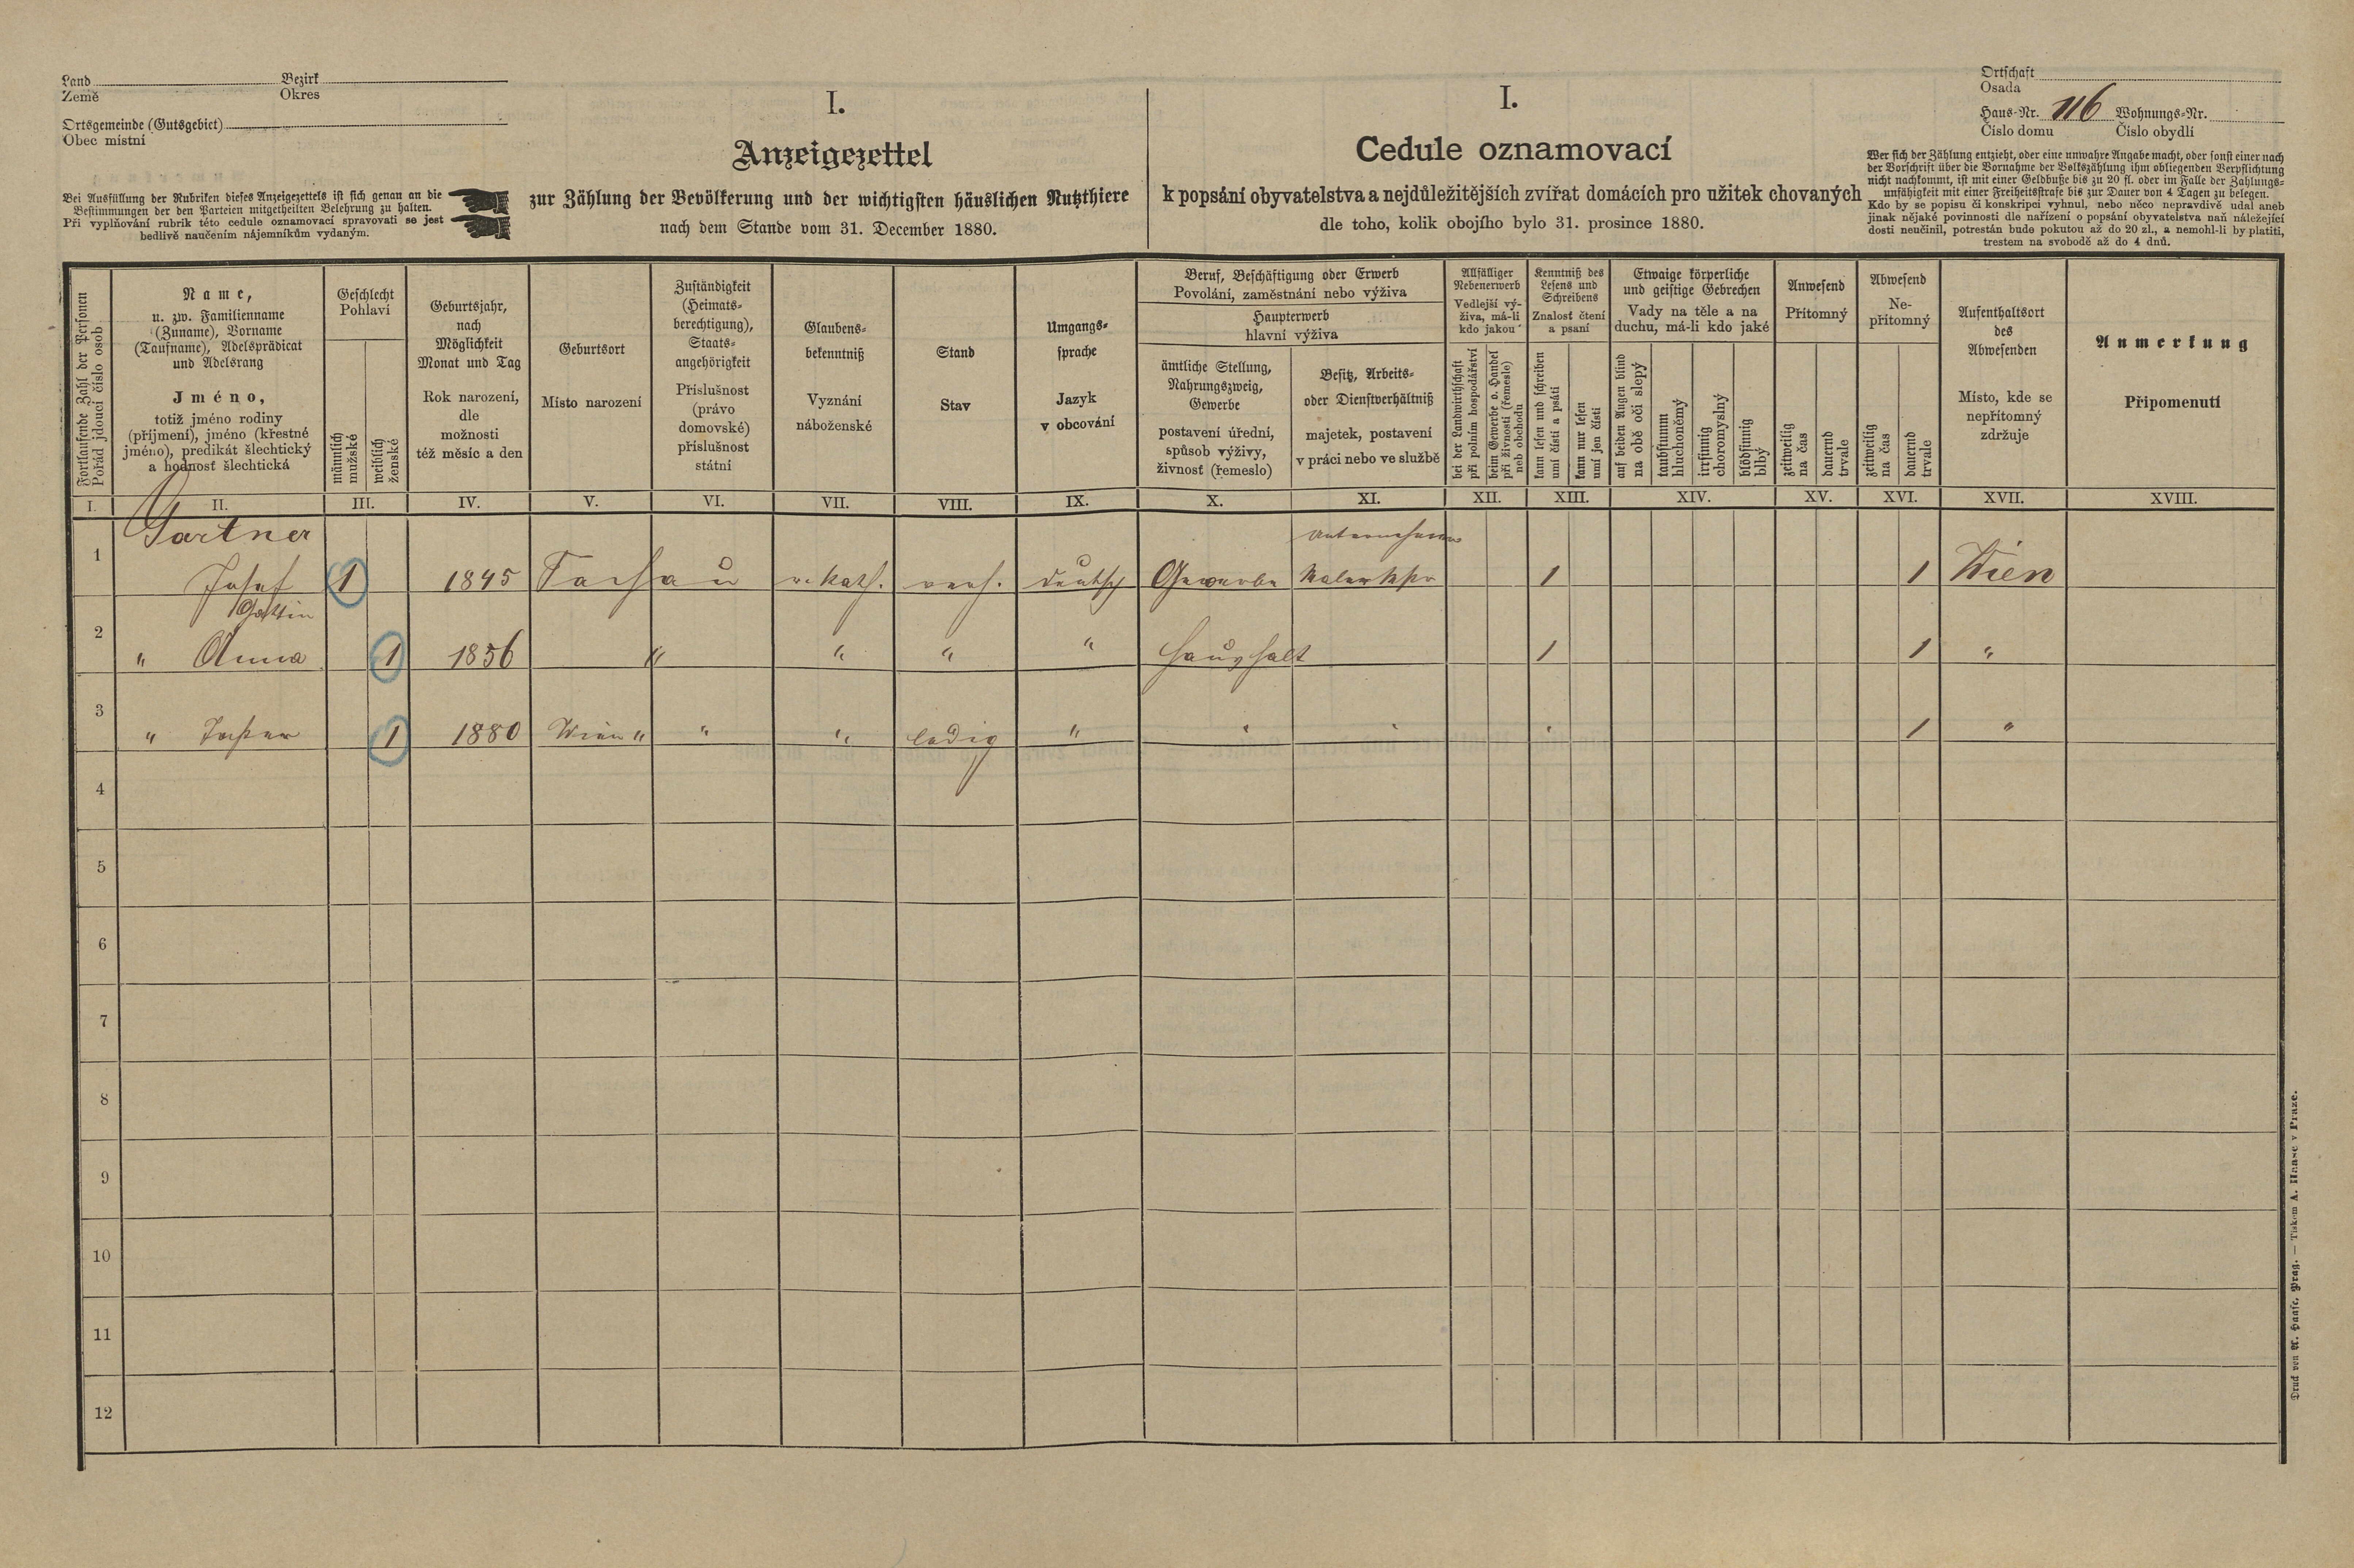 Land Bezirk
Země Okres
Ortsgemeinde (Gutsgebiet)
Obec místní
Bei Ausfüllung der Rubriken dieses Anzeigezettels ist sich genau an die
Bestimmungen der den Parteien mitgetheilten Belehrung zu halten.
Při vyplňování rubrik této cedule oznamovací spravovati se jest
bedlivě naučením nájemníkům vydaným.
I.
Anzeigezettel
zur Zählung der Bevölkerung und der wichtigsten häuslichen Nutzthiere
nach dem Stande vom 31. December 1880.
I.
Cedule oznamovací
k popsání obyvatelstva a nejdůležitějších zvířat domácích pro užitek chovaných
dle toho, kolik obojího bylo 31. prosince 1880.
Ortschaft
Osada
Haus-Nr. 116 Wohnungs-Nr.
Číslo domu Číslo obydlí
Wer sich der Zählung entzieht, oder eine unwahre Angabe macht, oder sonst einer nach
der Vorschrift über die Vornahme der Volkszählung ihm obliegenden Verpflichtung
nicht nachkommt, ist mit einer Geldbuße bis zu 20 fl. oder im Falle der Zahlungs-
unfähigkeit mit einer Freiheitsstrafe bis zur Dauer von 4 Tagen zu belegen.
Kdo by se popisu či konskripci vyhnul, nebo něco nepravdivě udal aneb
jinak nějaké povinnosti dle nařízení o popsání obyvatelstva naň náležející
dosti neučinil, potrestán bude pokutou až do 20 zl., a nemohl-li by platiti,
trestem na svobodě až do 4 dnů.
Fortlaufende Zahl der Personen
Pořád jdoucí číslo osob
Name,
u. zw. Familienname
(Zuname), Vorname
(Taufname), Adelsprädicat
und Adelsrang
Jméno,
totiž jméno rodiny
(příjmení), jméno (křestné
jméno), predikát šlechtický
a hodnosť šlechtická
Geschlecht
Pohlaví
männlich
mužské
weiblich
ženské
Geburtsjahr,
nach
Möglichkeit
Monat und Tag
Rok narození,
dle
možnosti
též měsíc a den
Geburtsort
Místo narození
Zuständigkeit
(Heimats-
berechtigung),
Staats-
angehörigkeit
Příslušnost
(právo
domovské)
příslušnost
státní
Glaubens-
bekenntniß
Vyznání
náboženské
Stand
Stav
Umgangs-
sprache
Jazyk
v obcování
Beruf, Beschäftigung oder Erwerb
Povolání, zaměstnání nebo výživa
Haupterwerb
hlavní výživa
ämtliche Stellung,
Nahrungszweig,
Gewerbe
postavení úřední,
spůsob výživy,
živnosť (řemeslo)
Besitz, Arbeits-
oder Dienstverhältniß
majetek, postavení
v práci nebo ve službě
Allfälliger
Nebenerwerb
Vedlejší vý-
živa, má-li
kdo jakou
bei der Landwirthschaft
při polním hospodářství
beim Gewerbe o. Handel
při živnosti (řemesle)
neb obchodu
Kenntniß des
Lesens und
Schreibens
Znalost čtení
a psaní
kann lesen und schreiben
umí čísti a psáti
kann nur lesen
umí jen čísti
Etwaige körperliche
und geistige Gebrechen
Vady na těle a na
duchu, má-li kdo jaké
auf beiden Augen blind
na obě oči slepý
taubstumm
hluchoněmý
irrsinnig
choromyslný
blödsinnig
blbý
Anwesend
Přítomný
zeitweilig
na čas
dauernd
trvale
Abwesend
Ne-
přítomný
zeitweilig
na čas
dauernd
trvale
Aufenthaltsort
des
Abwesenden
Místo, kde se
nepřítomný
zdržuje
Anmerkung
Připomenutí
I. II. III. IV. V. VI. VII. VIII. IX. X. XI. XII. XIII. XIV. XV. XVI. XVII. XVIII.
Gartner
1 Josef 1 1845 r. kath. verh. deutsch Gewerbe 1 1 Wien
Gattin
2 " Anna 1 1856 " " " " Haushalt 1 1 "
3 " 1 1880 Wien " " " ledig " " " " 1 "
4
5
6
7
8
9
10
11
12
Druck von A. Haase, Prag. — Tiskem A. Haase v Praze.